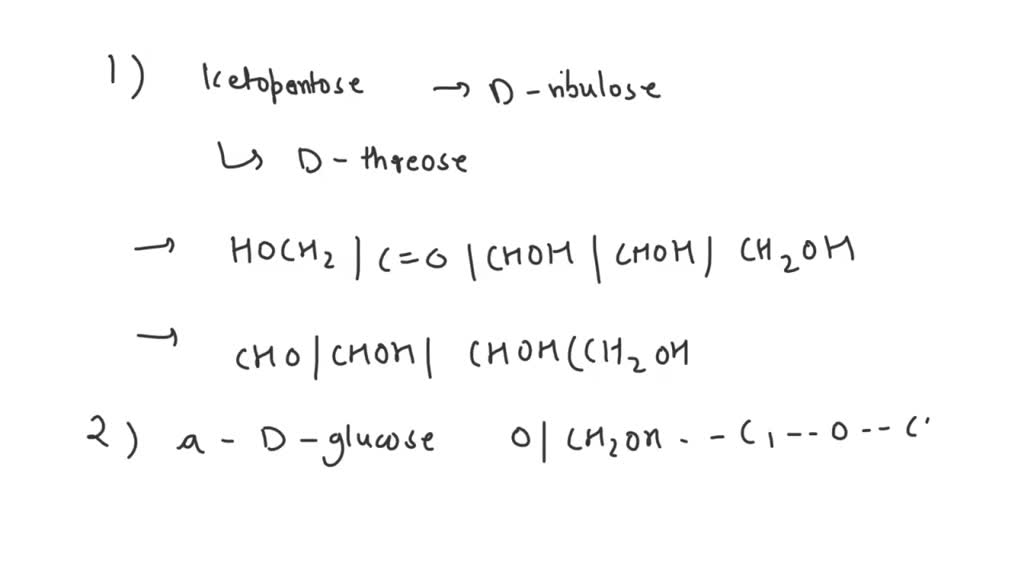 1) Ketopentose → D-ribulose
↳ D-threose
→ HOCH2 | C=O | CHOH | CHOH | CH2OH
→ CHO | CHOH | CHOH (CH2OH
2) a - D-glucose O | CH2OH - - C1 -- O -- C